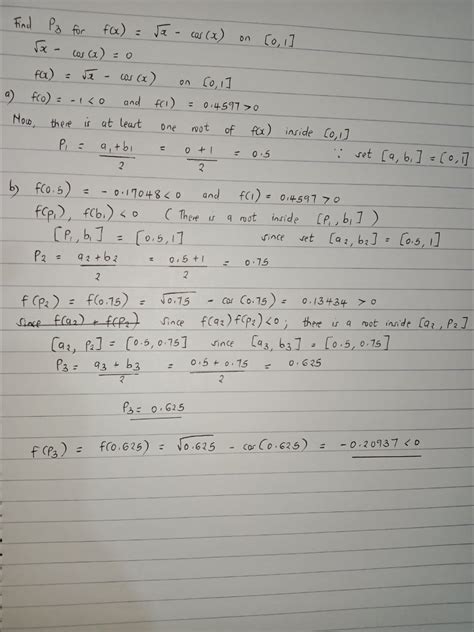 Find P3 for f(x) = √x - cos(x) on [0,1]
√x - cos(x) = 0
f(x) = √x - cos(x) on [0,1]
a) f(0) = -1 < 0 and f(1) = 0.4597 > 0
Now, there is at least one root of f(x) inside [0,1]
P1 = a1+b1/2 = 0+1/2 = 0.5 ∵ set [a, b1] = [0,1]
b) f(0.5) = -0.17048 < 0 and f(1) = 0.4597 > 0
f(P1), f(b1) < 0 (There is a root inside [P1, b1])
[P1, b1] = [0.5, 1] since set [a2, b2] = [0.5, 1]
P2 = a2+b2/2 = 0.5+1/2 = 0.75
f(P2) = f(0.75) = √0.75 - cos(0.75) = 0.13434 > 0
since f(a2) f(P2) since f(a2) f(P2) < 0; there is a root inside [a2, P2]
[a2, P2] = [0.5, 0.75] since [a3, b3] = [0.5, 0.75]
P3 = a3+b3/2 = 0.5+0.75/2 = 0.625
P3 = 0.625
f(P3) = f(0.625) = √0.625 - cos(0.625) = -0.20937 < 0